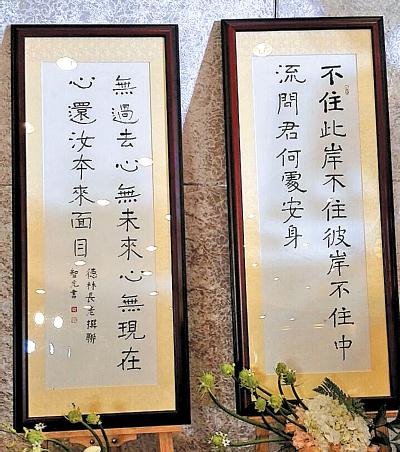 不住此岸不住彼岸不住中
流問君何處安身
無過去心無未來心無現在
心還汝本來面目
德林長老撰聯
智光書